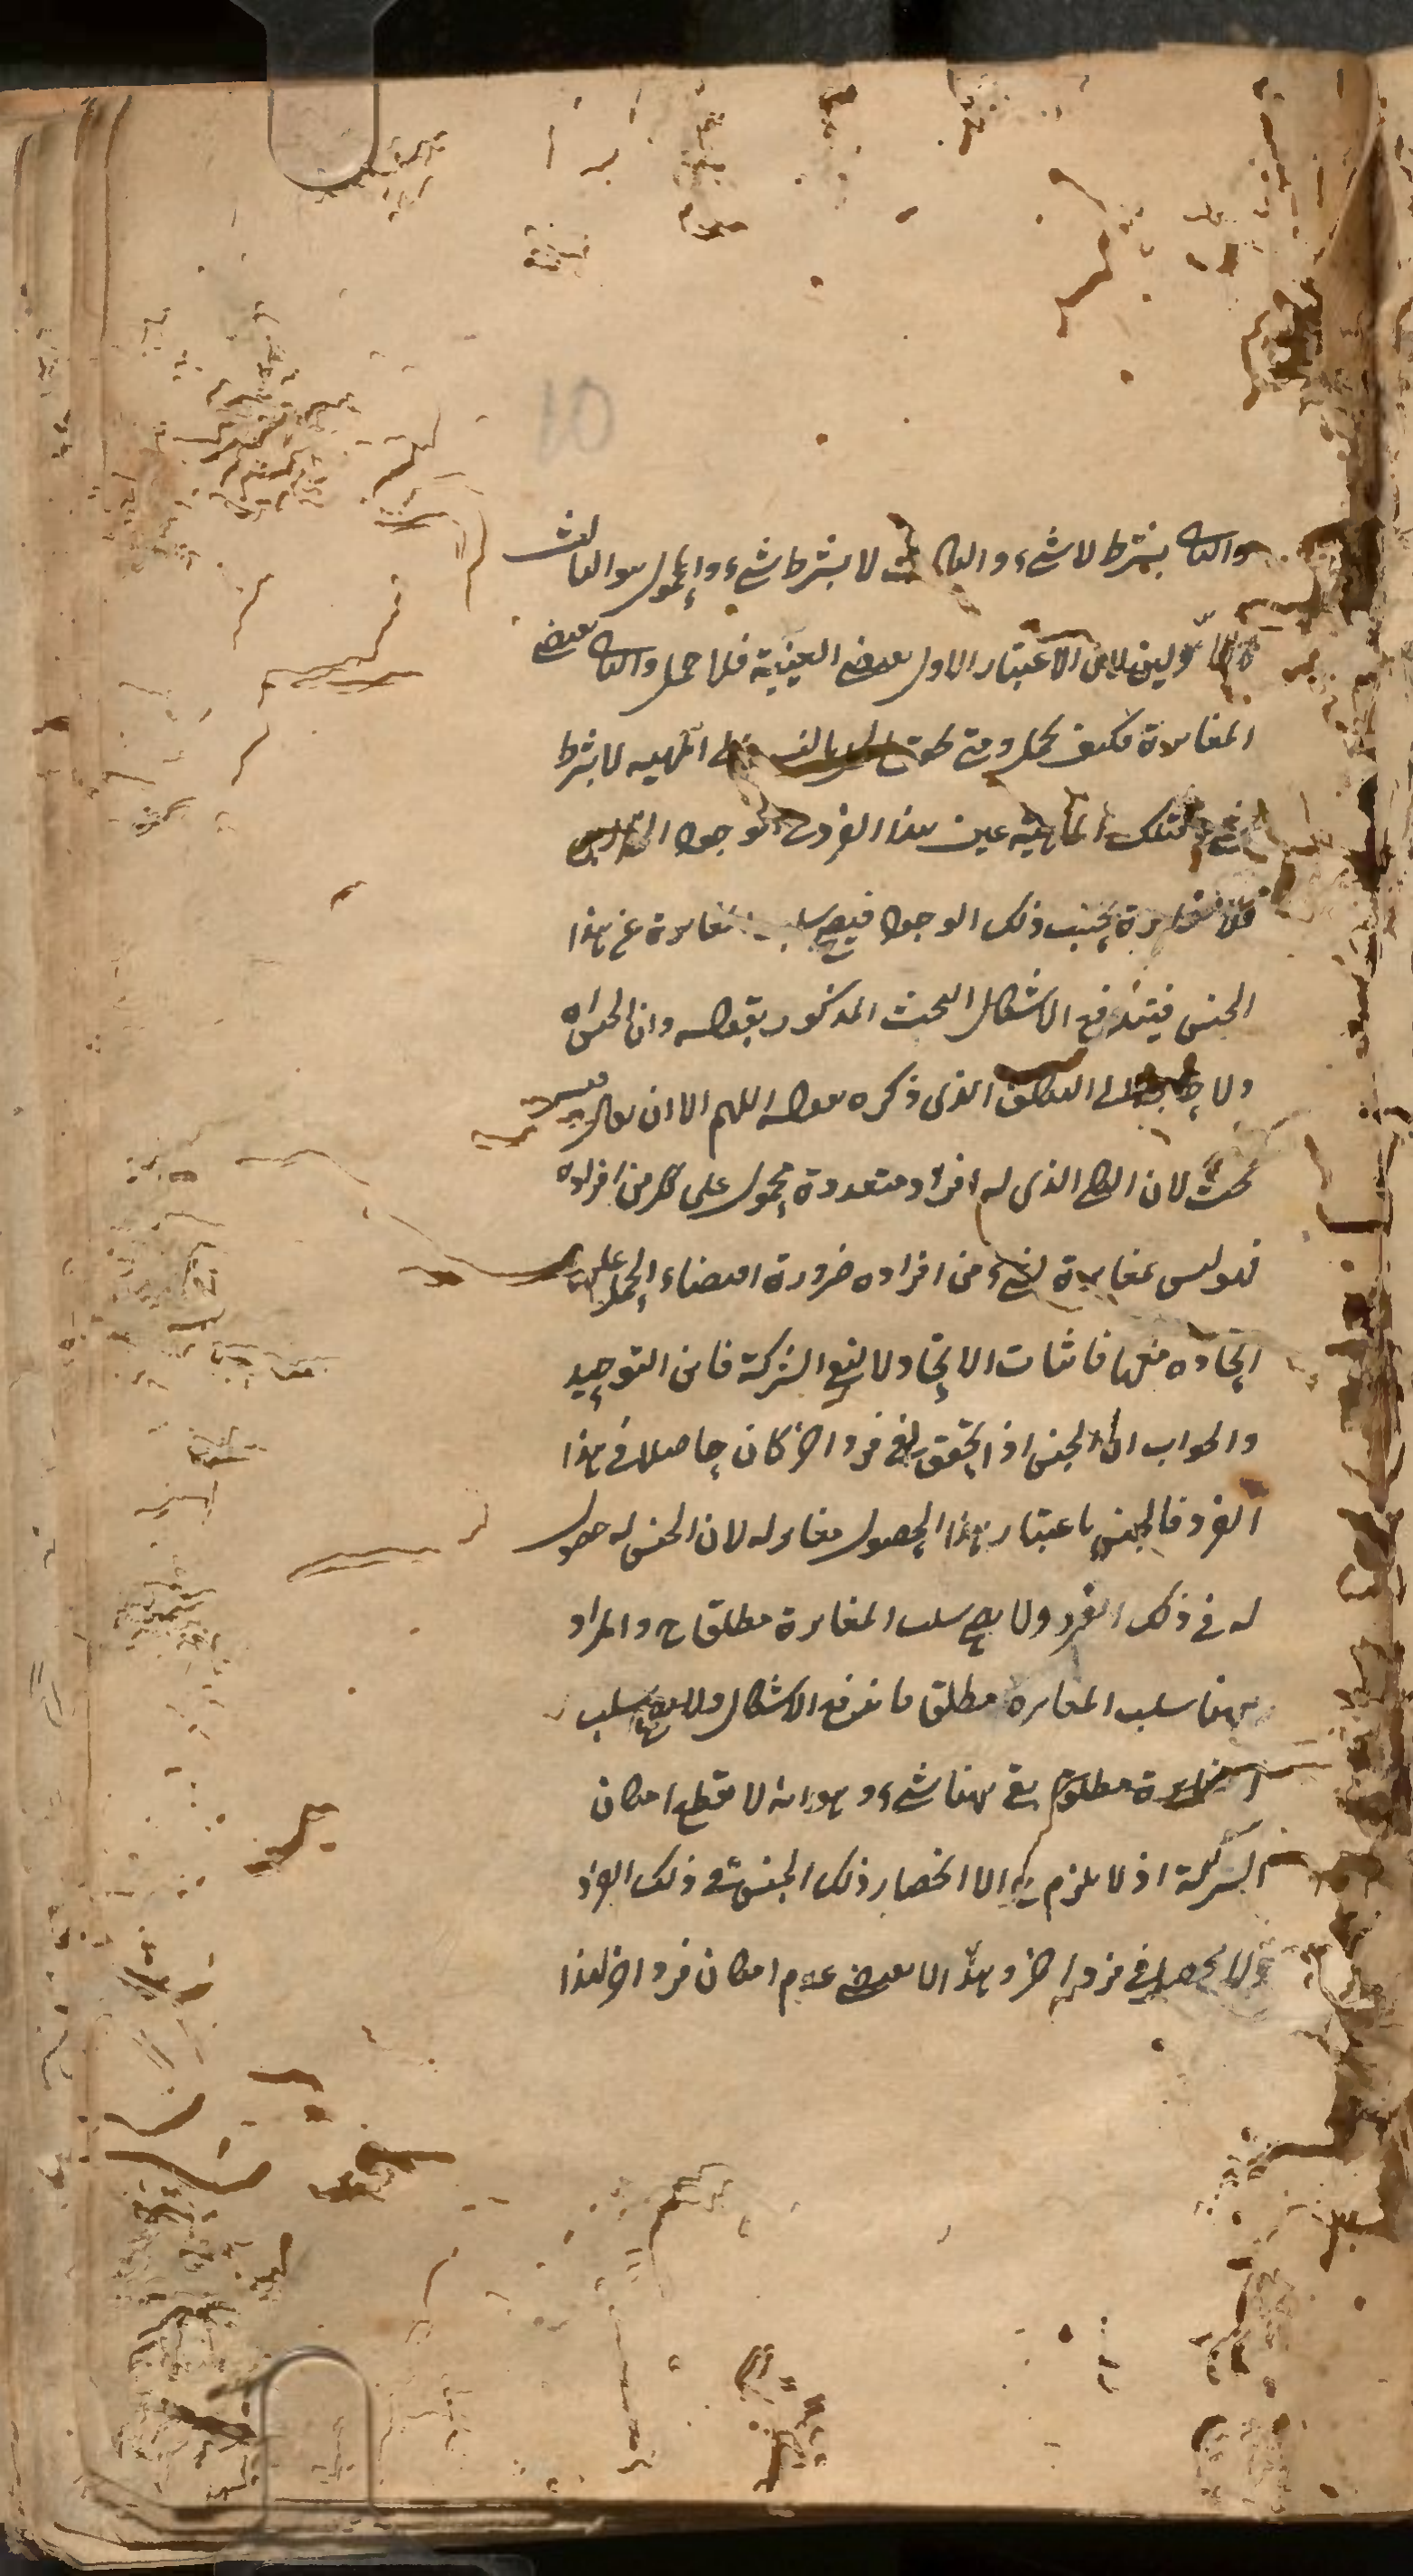 10
والثانى بشرط لا شىء والثالث لا بشرط شىء والمحمول هو الثالث
الاولين لان الاعتبار الاول يقتضى العينية فلا حمل والثانى يقتضى
المغايرة فكيف يحمل ومتى الماهية لا بشرط
شىء فتلك الماهية عين هذا الفرد فى الوجود
فلا مغايرة بحسب ذلك الوجود فيصح سلب مغايرة عن هذا
الجنس فيندفع الاشكال البحث المذكور بقوله وان الجنس اه
ولا الى التكلف الذى ذكره بقوله اللهم الا ان يقال
بحث لان الكلى الذى له افراد متعددة محمول على كل من افراده
فهو ليس بمغايرة لشىء من افراده ضرورة اقتضاء الحمل على
اتحاده معها فاثبات الاتحاد لا ينفع الشركة فاين التوحيد
والجواب ان الجنس اذا تحقق فى فرد اخر كان حاصلا فى هذا
الفرد فالجنس باعتبار هذا الحصول مغاير له لان الجنس له حصول
له فى ذلك الفرد ولا يصح سلب المغايرة مطلقا ح والمراد
ههنا سلب المغايرة مطلقا فاندفع الاشكال ولا يصح سلب
المغايرة مطلقا بقى ههنا شىء وهو انه لا يقطع امكان
الشركة اذ لا يلزم منه الا انحصار ذلك الجنس فى ذلك الفرد
ولا يحصل فى فرد اخر وهذا لا يقتضى عدم امكان فرد اخر لهذا